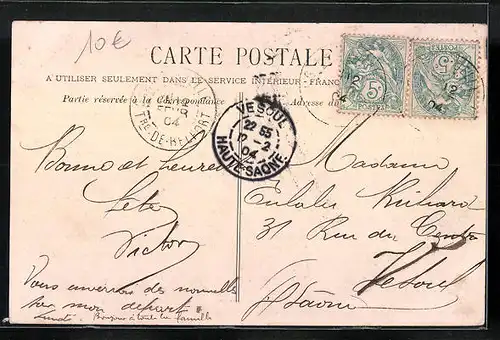 10€
CARTE POSTALE
A UTILISER SEULEMENT DANS LE SERVICE INTÉRIEUR - FRANC
Partie réservée à la Correspondance
Adresse du
FEVR
04
TRE-DE-BELFORT
VESOUL
22 55
12 - 2
04
HAUTE-SAONE
12
04
5
POSTES
12
04
5
Bonne et heureuse
fête
Victor
Vous enverrons des nouvelles
sur mon départ
Lundi. Bonjour à toute la famille
Madame
Eulalie Richard
31 Rue du Centre
Vesoul
Hte Saône